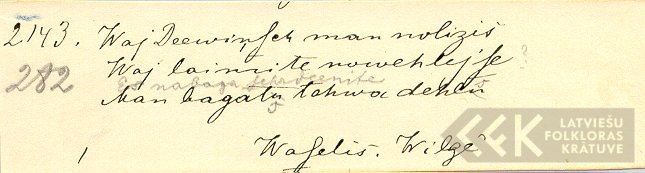 2143. Waj Deewiņsch man nolizis
282 Waj laimite nowehlejse ?
Es nabaga
Man bagatu tehwa dehlu
Waselis. Wilzē
LATVIEŠU
FOLKLORAS
KRĀTUVE